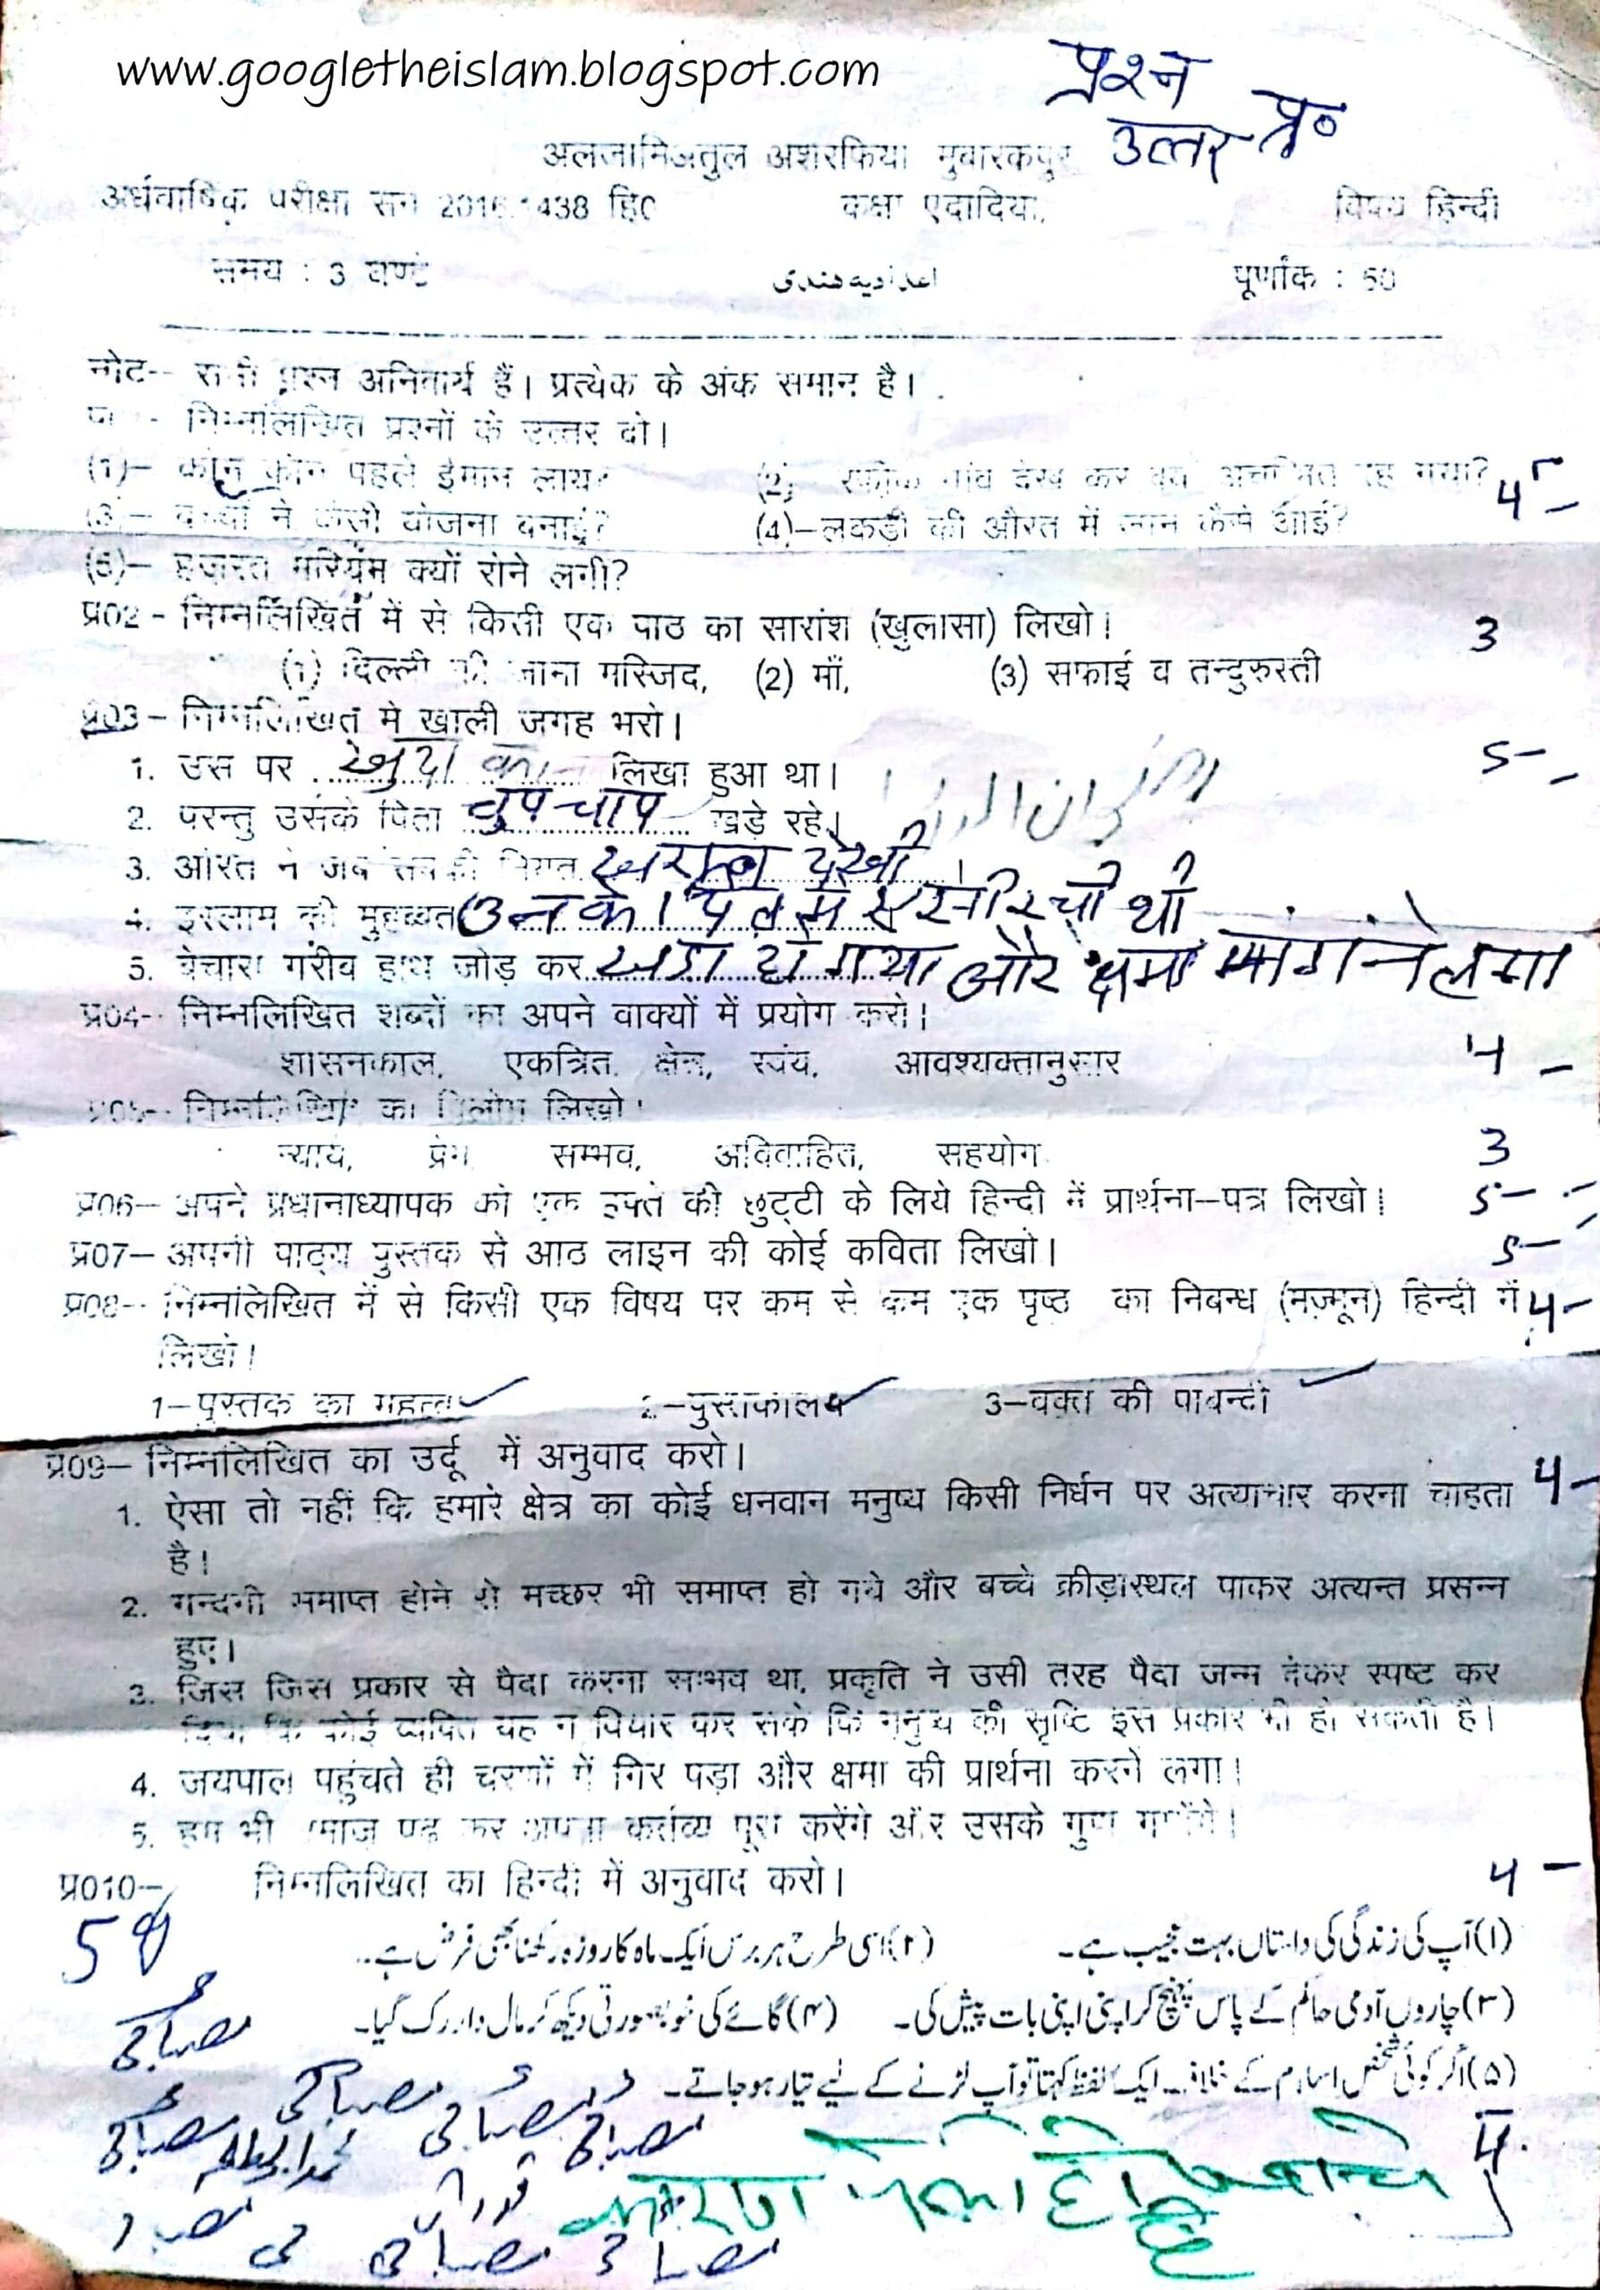 www.googletheislam.blogspot.com
प्रश्न
उत्तर प्र०
अलजामिअतुल अशरफिया मुबारकपुर
अर्धवार्षिक परीक्षा सन 2016,1438 हि0 कक्षा एदादिया, विषय हिन्दी
समय : 3 घण्टे اعدادیہ ھندی पूर्णांक :
नोट-- सभी प्रश्न अनिवार्य हैं। प्रत्येक के अंक समान है।
निम्नलिखित प्रश्नों के उत्तर दो।
(1)– कौन कौन पहले ईमान लाये? (2) गांव देख कर रह गया? 4
(3)– बच्चों ने कैसी योजना बनाई? (4)–लकड़ी की औरत में जान कैसे आई?
(5)– हज़रत मरियम क्यों रोने लगी?
प्र02 - निम्नलिखित में से किसी एक पाठ का सारांश (खुलासा) लिखो। 3
(1) दिल्ली की जामा मस्जिद, (2) माँ, (3) सफाई व तन्दुरुस्ती
प्र03 – निम्नलिखित मे खाली जगह भरो।
1. उस पर खुदा का लिखा हुआ था। 5–
2. परन्तु उसके पिता चुपचाप खड़े रहे।
3. औरत ने जब उसकी नियत देखी
4. इस्लाम की मुहब्बत उनके दिल में थी
5. बेचारा गरीब हाथ जोड़ कर खडा हो गया और क्षमा मांगने लगा
प्र04-- निम्नलिखित शब्दों का अपने वाक्यों में प्रयोग करो।
शासनकाल, एकत्रित, क्षेत्र, स्वंय, आवश्यक्तानुसार 4 –
प्र05-- निम्नलिखित का विलोम लिखो।
न्याय, प्रेम, सम्भव, अविवाहित, सहयोग 3
प्र06– अपने प्रधानाध्यापक को एक हफ्ते की छुट्टी के लिये हिन्दी में प्रार्थना–पत्र लिखो। 5–
प्र07– अपनी पाठ्य पुस्तक से आठ लाइन की कोई कविता लिखो। 5–
प्र08-- निम्नलिखित में से किसी एक विषय पर कम से कम एक पृष्ठ का निबन्ध (मज़्मून) हिन्दी में 4–
लिखो।
1–पुस्तक का महत्व 2–पुस्तकालय 3–वक्त की पाबन्दी
प्र09– निम्नलिखित का उर्दू में अनुवाद करो।
1. ऐसा तो नहीं कि हमारे क्षेत्र का कोई धनवान मनुष्य किसी निर्धन पर अत्याचार करना चाहता 4–
है।
2. गन्दगी समाप्त होने से मच्छर भी समाप्त हो गये और बच्चे क्रीड़ास्थल पाकर अत्यन्त प्रसन्न
हुए।
3. जिस जिस प्रकार से पैदा करना सम्भव था, प्रकृति ने उसी तरह पैदा जन्म देकर स्पष्ट कर
दिया कि कोई व्यक्ति यह न विचार कर सके कि मनुष्य की सृष्टि इस प्रकार भी हो सकती है।
4. जयपाल पहुंचते ही चरणों में गिर पड़ा और क्षमा की प्रार्थना करने लगा।
5. हम भी नमाज़ पढ़ कर अपना कर्तव्य पूरा करेंगे और उसके गुण गायेंगे।
प्र010– निम्नलिखित का हिन्दी में अनुवाद करो। 4 –
(۱) آپ کی زندگی کی داستاں بہت عجیب ہے۔ (۲) اسی طرح ہر برس ایک ماہ کا روزہ رکھنا بھی فرض ہے۔
(۳) چاروں آدمی حاکم کے پاس پہنچ کر اپنی اپنی بات پیش کی۔ (۴) گائے کی خوبصورتی دیکھ کر مال دار رک گیا۔
(۵) اگر کوئی شخص اسلام کے خلاف ایک لفظ کہتا تو آپ لڑنے کے لیے تیار ہو جاتے۔
مصباحی
مصباحی مصباحی
مصباحی مصباحی
कारण
مصباحی